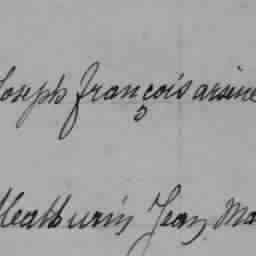 Joseph françois arsine
Mathurin Jean Ma